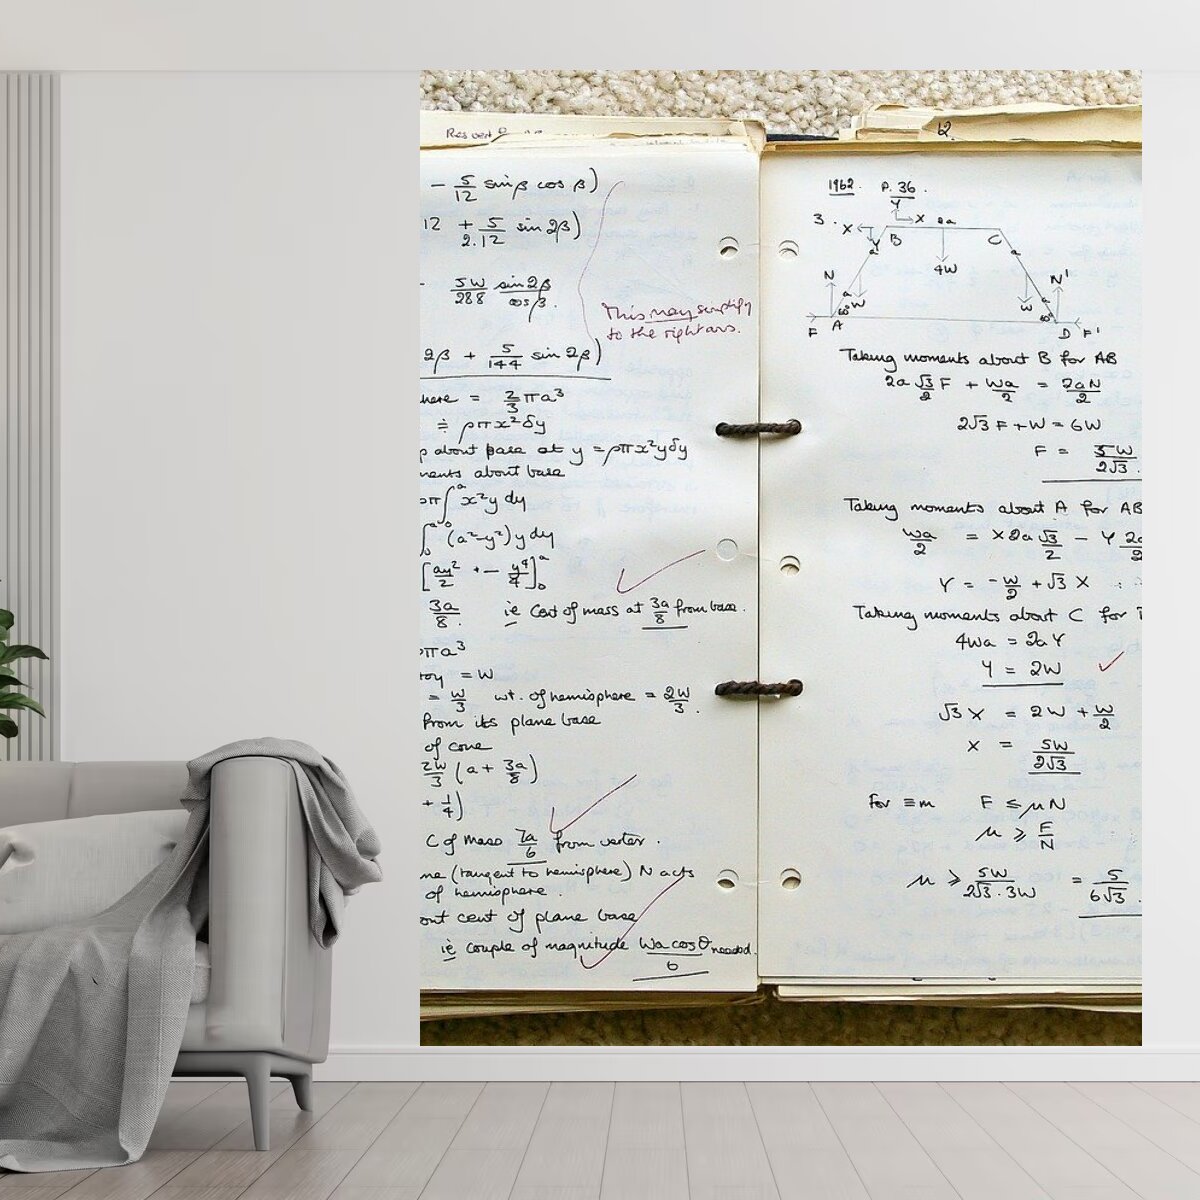 Res vert
− 5/12 sin β cos β)
12 + 5/2.12 sin 2β)
5W/288 sin 2β/cos β.
This may simplify
to the right ans.
2β + 5/144 sin 2β)
here = 2/3 πa³
≑ ρπx²δy
about base at y = ρπx²yδy
ments about base
ρπ∫ᵃ₀ x²y dy
∫ᵃ₀ (a²-y²)y dy
[ay²/2 + - y⁴/4]ᵃ₀
3a/8. ie Cent of mass at 3a/8 from base.
πa³
= W
= W/3 wt. of hemisphere = 2W/3.
from its plane base
of cone
2W/3 (a + 3a/8)
+ 1/4)
C of mass 7a/6 from vertex.
ne (tangent to hemisphere) N acts
of hemisphere.
out cent of plane base
ie couple of magnitude Wa cos θ/6 needed.
12
1962. P. 36.
Y
3. X X 2a
Y B C
a a
4W
N N'
a W W a
60° 60°
F A D F'
Taking moments about B for AB
2a √3/2 F + Wa/2 = 2aN/2
2√3 F + W = 6W
F = 5W/2√3.
Taking moments about A for AB
Wa/2 = X 2a √3/2 - Y 2a/2
Y = -W/2 + √3 X
Taking moments about C for
4Wa = 2aY
Y = 2W
√3 X = 2W + W/2
X = 5W/2√3
For ≡m F ≤ μN
μ ⩾ F/N
μ ⩾ 5W/2√3.3W = 5/6√3.